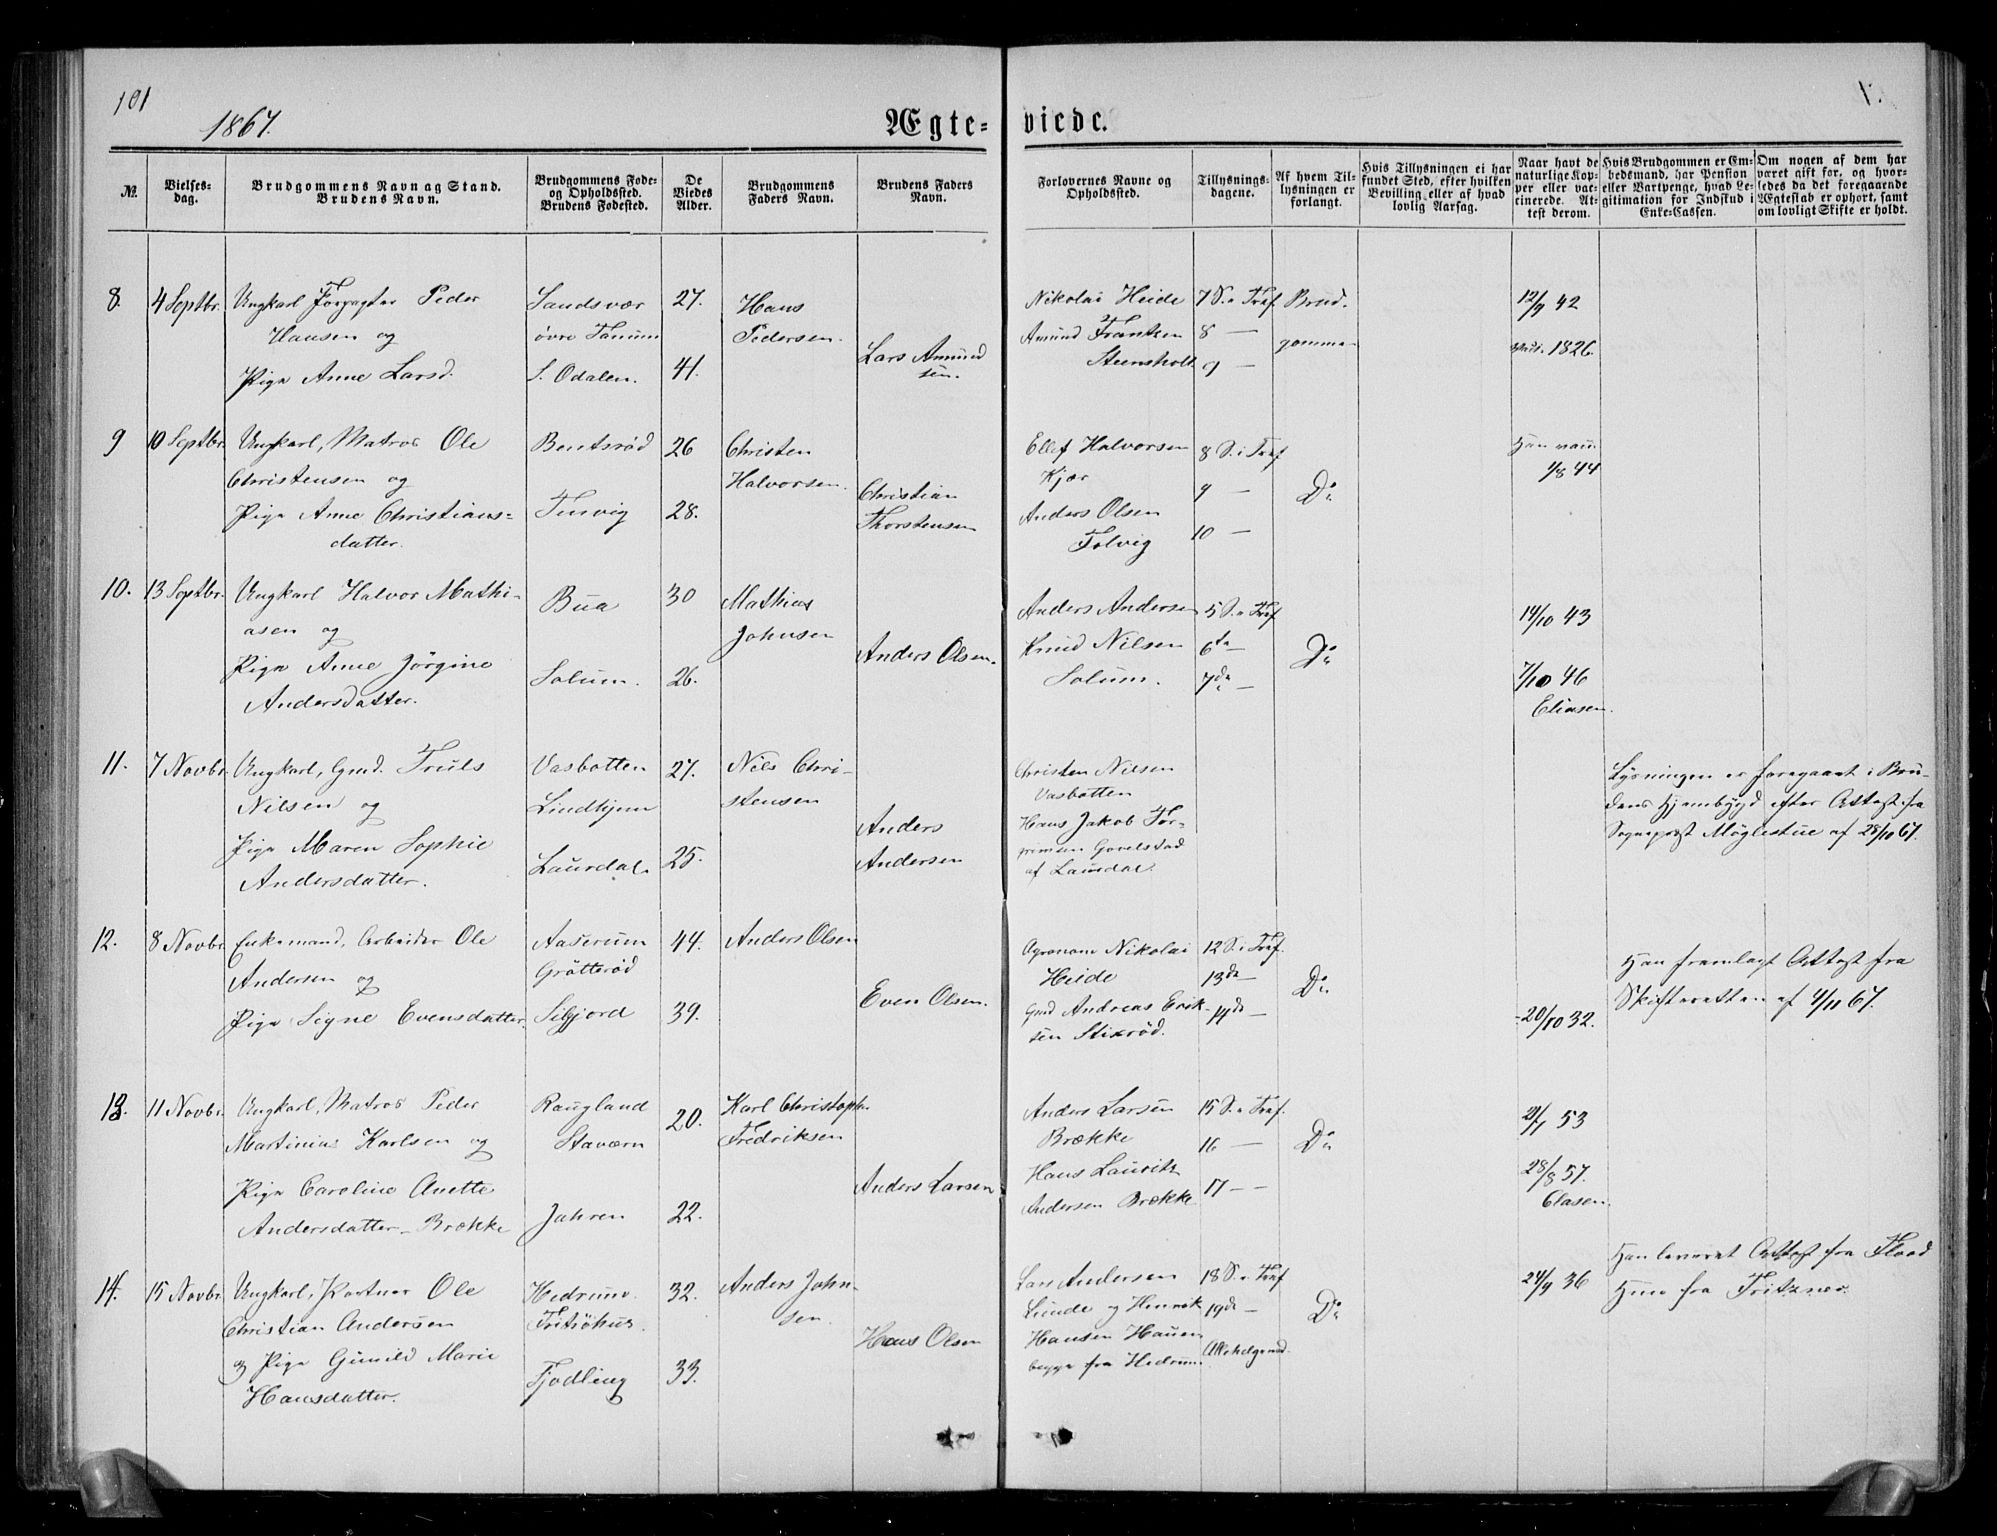 101
1867.
Ægte- viede.
№.
Vielses-
dag.
Brudgommens Navn ag Stand.
Brudens Navn.
Brudgommens Føde-
og Opholdssted.
Brudens Fødested.
De
Viedes
Alder.
Brudgommens
Faders Navn.
Brudens Faders
Navn.
Forlovernes Navne og
Opholdssted.
Tillysnings-
dagene.
Af hvem Til-
lysningen er
forlangt.
Hvis Tillysningen ei har
fundet Sted, efter hvilken
Bevilling eller af hvad
lovlig Aarsag.
Naar havt de
naturlige Kop-
per eller vac-
cinerede. At-
test derom.
Hvis Brudgommen er Em-
bedsmand, har Pension
eller Vartpenge, hvad Le-
gitimation for Indskud i
Enke-Cassen.
Om nogen af dem har
været gift før, og hvor-
ledes da det foregaaende
Ægteskab er ophørt, samt
om lovligt Skifte er holdt.
8. 4 Septbr. Ungkarl Peder
Hansen og
Pige Anne Larsd.
Sandsvær
øvre Tanum
S. Odalen.
27.
41.
Hans
Pedersen.
Lars Amund
sen.
Nikolai Heide
Amund Frantzen
Steensholt
7 S. e Tref
8 —
9 —
Brud-
gomme-
12/9 42
1826.
9 10 Septbr. Ungkarl, Matros Ole
Christensen og
Pige Anne Christians-
datter.
Bentsrød
26
28.
Christen
Halvorsen.
Christian
Thorstensen
Ellef Halvorsen
Kjær
Anders Olsen
Tolvig
8 S. i Tref
9 —
10 —
Do
Han vacci
1/8 44
10. 13 Septbr. Ungkarl Halvor Mathi-
asen og
Pige Anne Jørgine
Andersdatter.
Bua
Solum.
30
26.
Mathias
Johnsen
Anders Olsen.
Anders Andersen
Knud Nilsen
Solum.
5 S. e Tref
6te —
7de —
Do
14/10 43
7/10 46
Eliasen.
11. 7 Novbr. Ungkarl, Gmd. Truls
Nilsen og
Pige Maren Sophie
Andersdatter.
Vasbotten
Lindhjem
Laurdal
27.
25.
Nils Chri-
stensen
Anders
Andersen
Christen Nilsen
Vasbotten
Hans Jakob Tor-
af Laurdal
Lysningen er foregaaet i Bru-
dens Hjembygd efter Attest fra
Sognepræst Møglestue af 28/10 67.
12. 8 Novbr. Enkemand, Arbeider Ole
Andersen og
Pige Signe Evensdatter.
Aaserum
Grøtterød
Seljord
44.
39.
Anders Olsen
Even Olsen.
Agronom Nikolai
Heide
Gmd Andreas Erik-
sen Stixrød.
12 S. i Tref.
13de —
14de —
Do
20/10 32.
Han fremlagt Attest fra
Skifteretten af 4/11 67.
13. 11 Novbr. Ungkarl, Matros Peder
Martinius Karlsen og
Pige Caroline Anette
Andersdatter Brække
Raugland
Staværn
Jahren
20.
22.
Karl Christoph.
Fredriksen
Anders Larsen
Anders Larsen
Brække
Hans Lauritz
Andersen Brække
15 S. e Tref.
16 —
17 —
Do
21/1 53
28/8 57.
Clasen.
14. 15 Novbr. Ungkarl, Ole
Christian Andersen
og Pige Gunild Marie
Hansdatter.
Hedrum
Fritsøhus.
Tjødling
32.
33.
Anders John-
sen.
Hans Olsen
Lars Andersen
Lunde og Henrik
Hansen Hauen
begge fra Hedrum.
18 S. e Tref
19de —
Allehelgensd.
Do
24/9 36
Han leveret Attest fra Flood
Hun fra Fritzner.